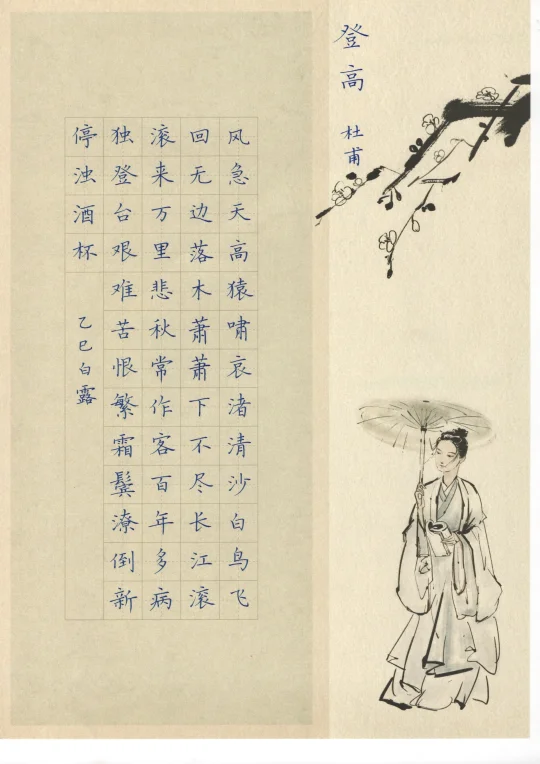 登高
杜甫
风急天高猿啸哀渚清沙白鸟飞
回无边落木萧萧下不尽长江滚
滚来万里悲秋常作客百年多病
独登台艰难苦恨繁霜鬓潦倒新
停浊酒杯
乙巳白露